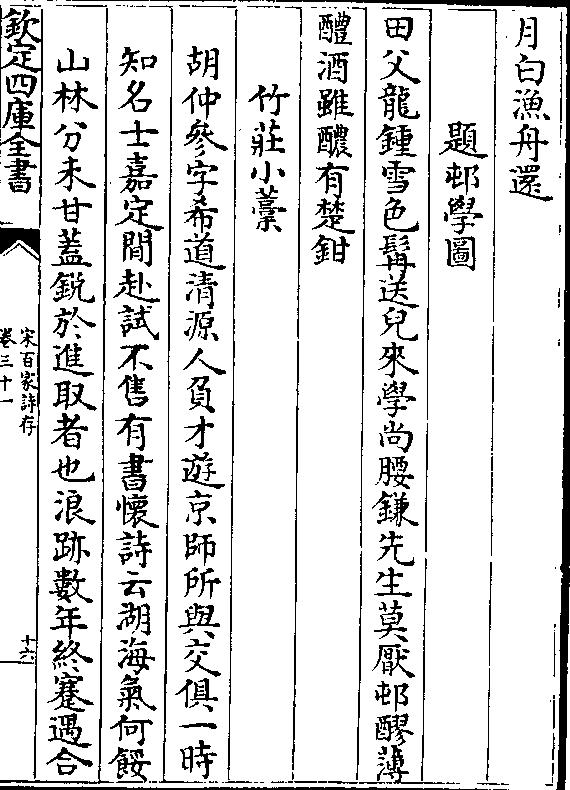 月白漁舟還
題邨學圖
田父龍鍾雪色髯送兒來學尚腰鎌先生莫厭邨醪薄
醴酒雖醲有楚鉗
竹莊小藁
胡仲參字希道清源人負才遊京師所與交俱一時
知名士嘉定間赴試不售有書懷詩云湖海氣何餒
山林分未甘蓋鋭於進取者也浪跡數年終蹇遇合
欽定四庫全書
宋百家詩存
卷三十一
十六